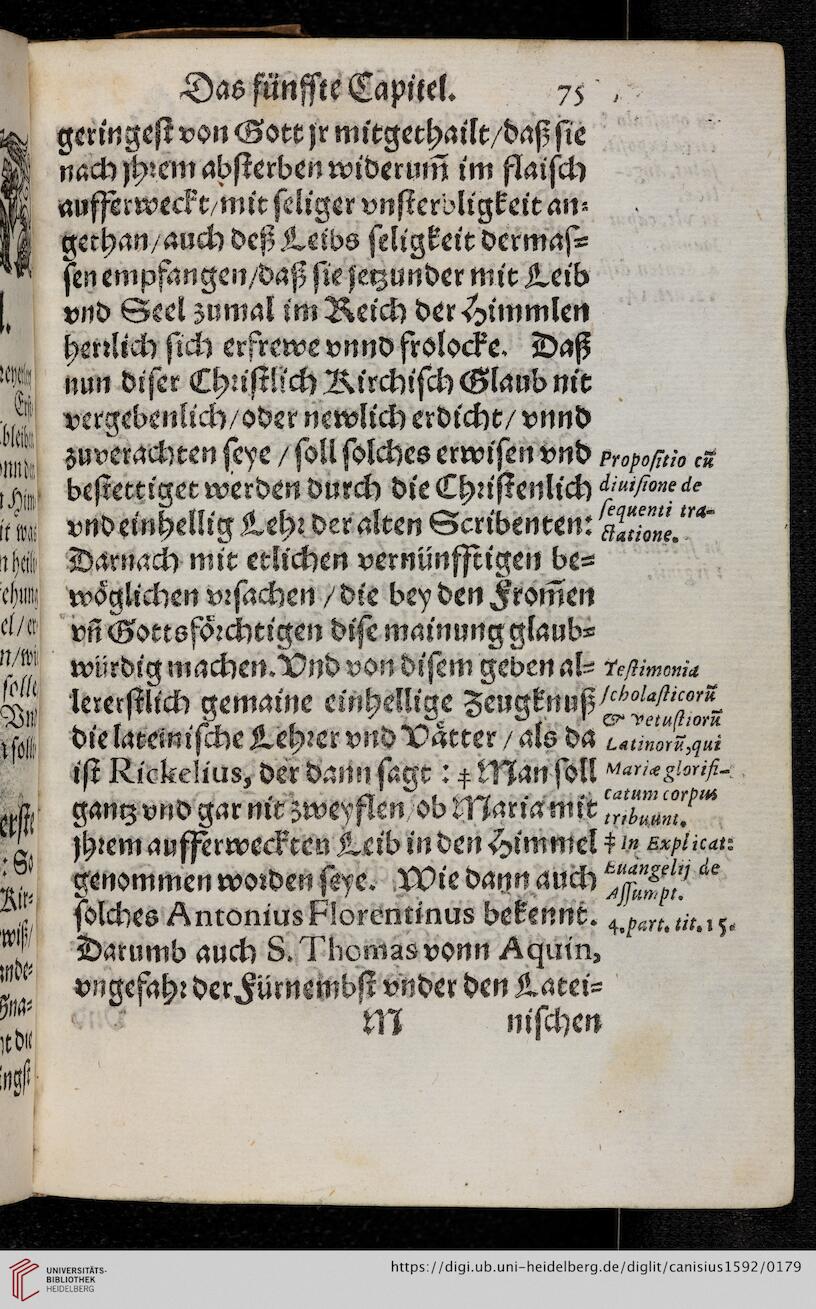 Das fünffte Capitel. 75
geringest von Gott jr mitgethailt/daß sie
nach jhrem absterben widerum̃ im flaisch
aufferweckt/mit seliger vnsterbligkeit an-
gethan/auch deß Leibs seligkeit dermas-
sen empfangen/daß sie jetzunder mit Leib
vnd Seel zumal im Reich der Himmlen
herrlich sich erfrewe vnnd frolocke. Daß
nun diser Christlich Kirchisch Glaub nit
vergebenlich/oder newlich erdicht/ vnnd
zuverachten seye / soll solches erwisen vnd
bestettiget werden durch die Christenlich
vnd einhellig Lehr der alten Scribenten:
Darnach mit etlichen vernünfftigen be-
wöglichen vrsachen / die bey den From̃en
vñ Gottsförchtigen dise mainung glaub-
würdig machen. Vnd von disem geben al-
lererstlich gemaine einhellige Zeugknuß
die lateinische Lehrer vnd Vätter / als da
ist Rickelius, der dann sagt : ‡ Man soll
gantz vnd gar nit zweyflen/ob Maria mit
jhrem aufferweckten Leib in den Himmel
genommen worden seye. Wie dann auch
solches Antonius Florentinus bekennt.
Darumb auch S. Thomas vonn Aquin,
vngefahr der Fürnembst vnder den Latei-
M nischen
Propositio cū
diuisione de
sequenti tra-
ctatione.
Testimonia
scholasticorū
& vetustiorū
Latinorū, qui
Mariæ glorifi-
catum corpus
tribuunt.
‡ In Explicat:
Euangelij de
Assumpt.
4. part. tit. 15.
UNIVERSITÄTS-
BIBLIOTHEK
HEIDELBERG
https://digi.ub.uni-heidelberg.de/diglit/canisius1592/0179